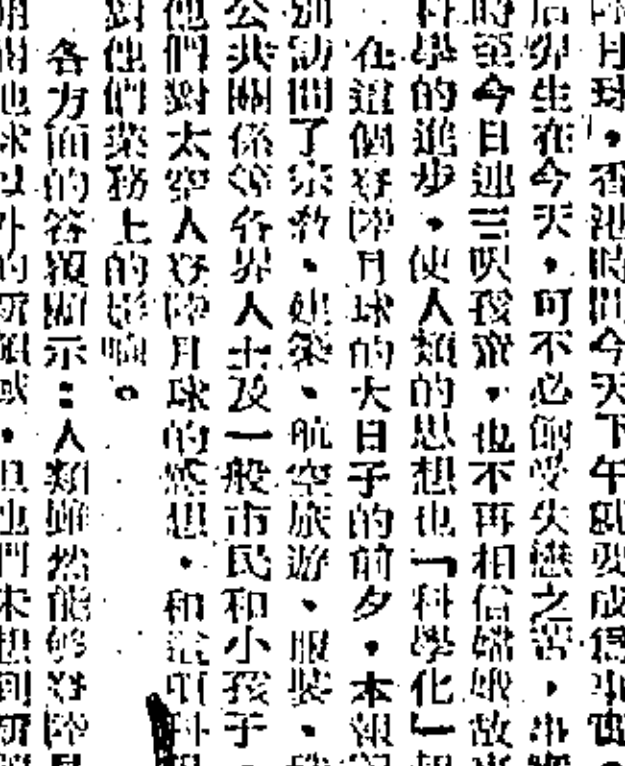 月球。香港時間今天下午就要成爲事實
后羿生在今天,可不必飽受失戀之苦,事
時至今日連三呎孩童,也不再相信嫦娥故事
科學的進步,使人類的思想也「科學化」
在這個登陸月球的大日子的前夕,本報
別訪問了宗教、建築、航空旅游、服裝、
公共關係等各界人士及一般市民和小孩子
他們對太空人登陸月球的感想,和這項科
對他們業務上的影响。
各方面的答覆顯示:人類雖然能够登陸月
地球以外的新領域,但他們未想到新